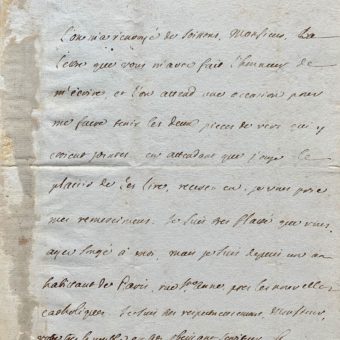 L'on m'a renvoyé de Soissons, Monsieur, La
Lettre que vous m'avez fait l'honneur de
m'écrire et l'on attend une occasion pour
me faire tenir les deux pieces de vers qui y
etoient jointes, en attendant que j'aye le
plaisir de les lire, recevez en je vous prie
mes remercimens. Je suis tres flatté que vous
ayez songé à moi, mais je suis depuis un an
habitant de Paris, rue Ste anne pres les nouvelles
catholiques. Je suis tres respectueusement, Monsieur,
votre tres humble et tres obeissant serviteur